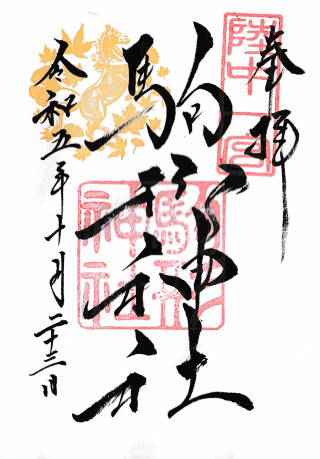 奉拝
陸中一宮
駒形神社
駒形神社
令和五年十月二十三日